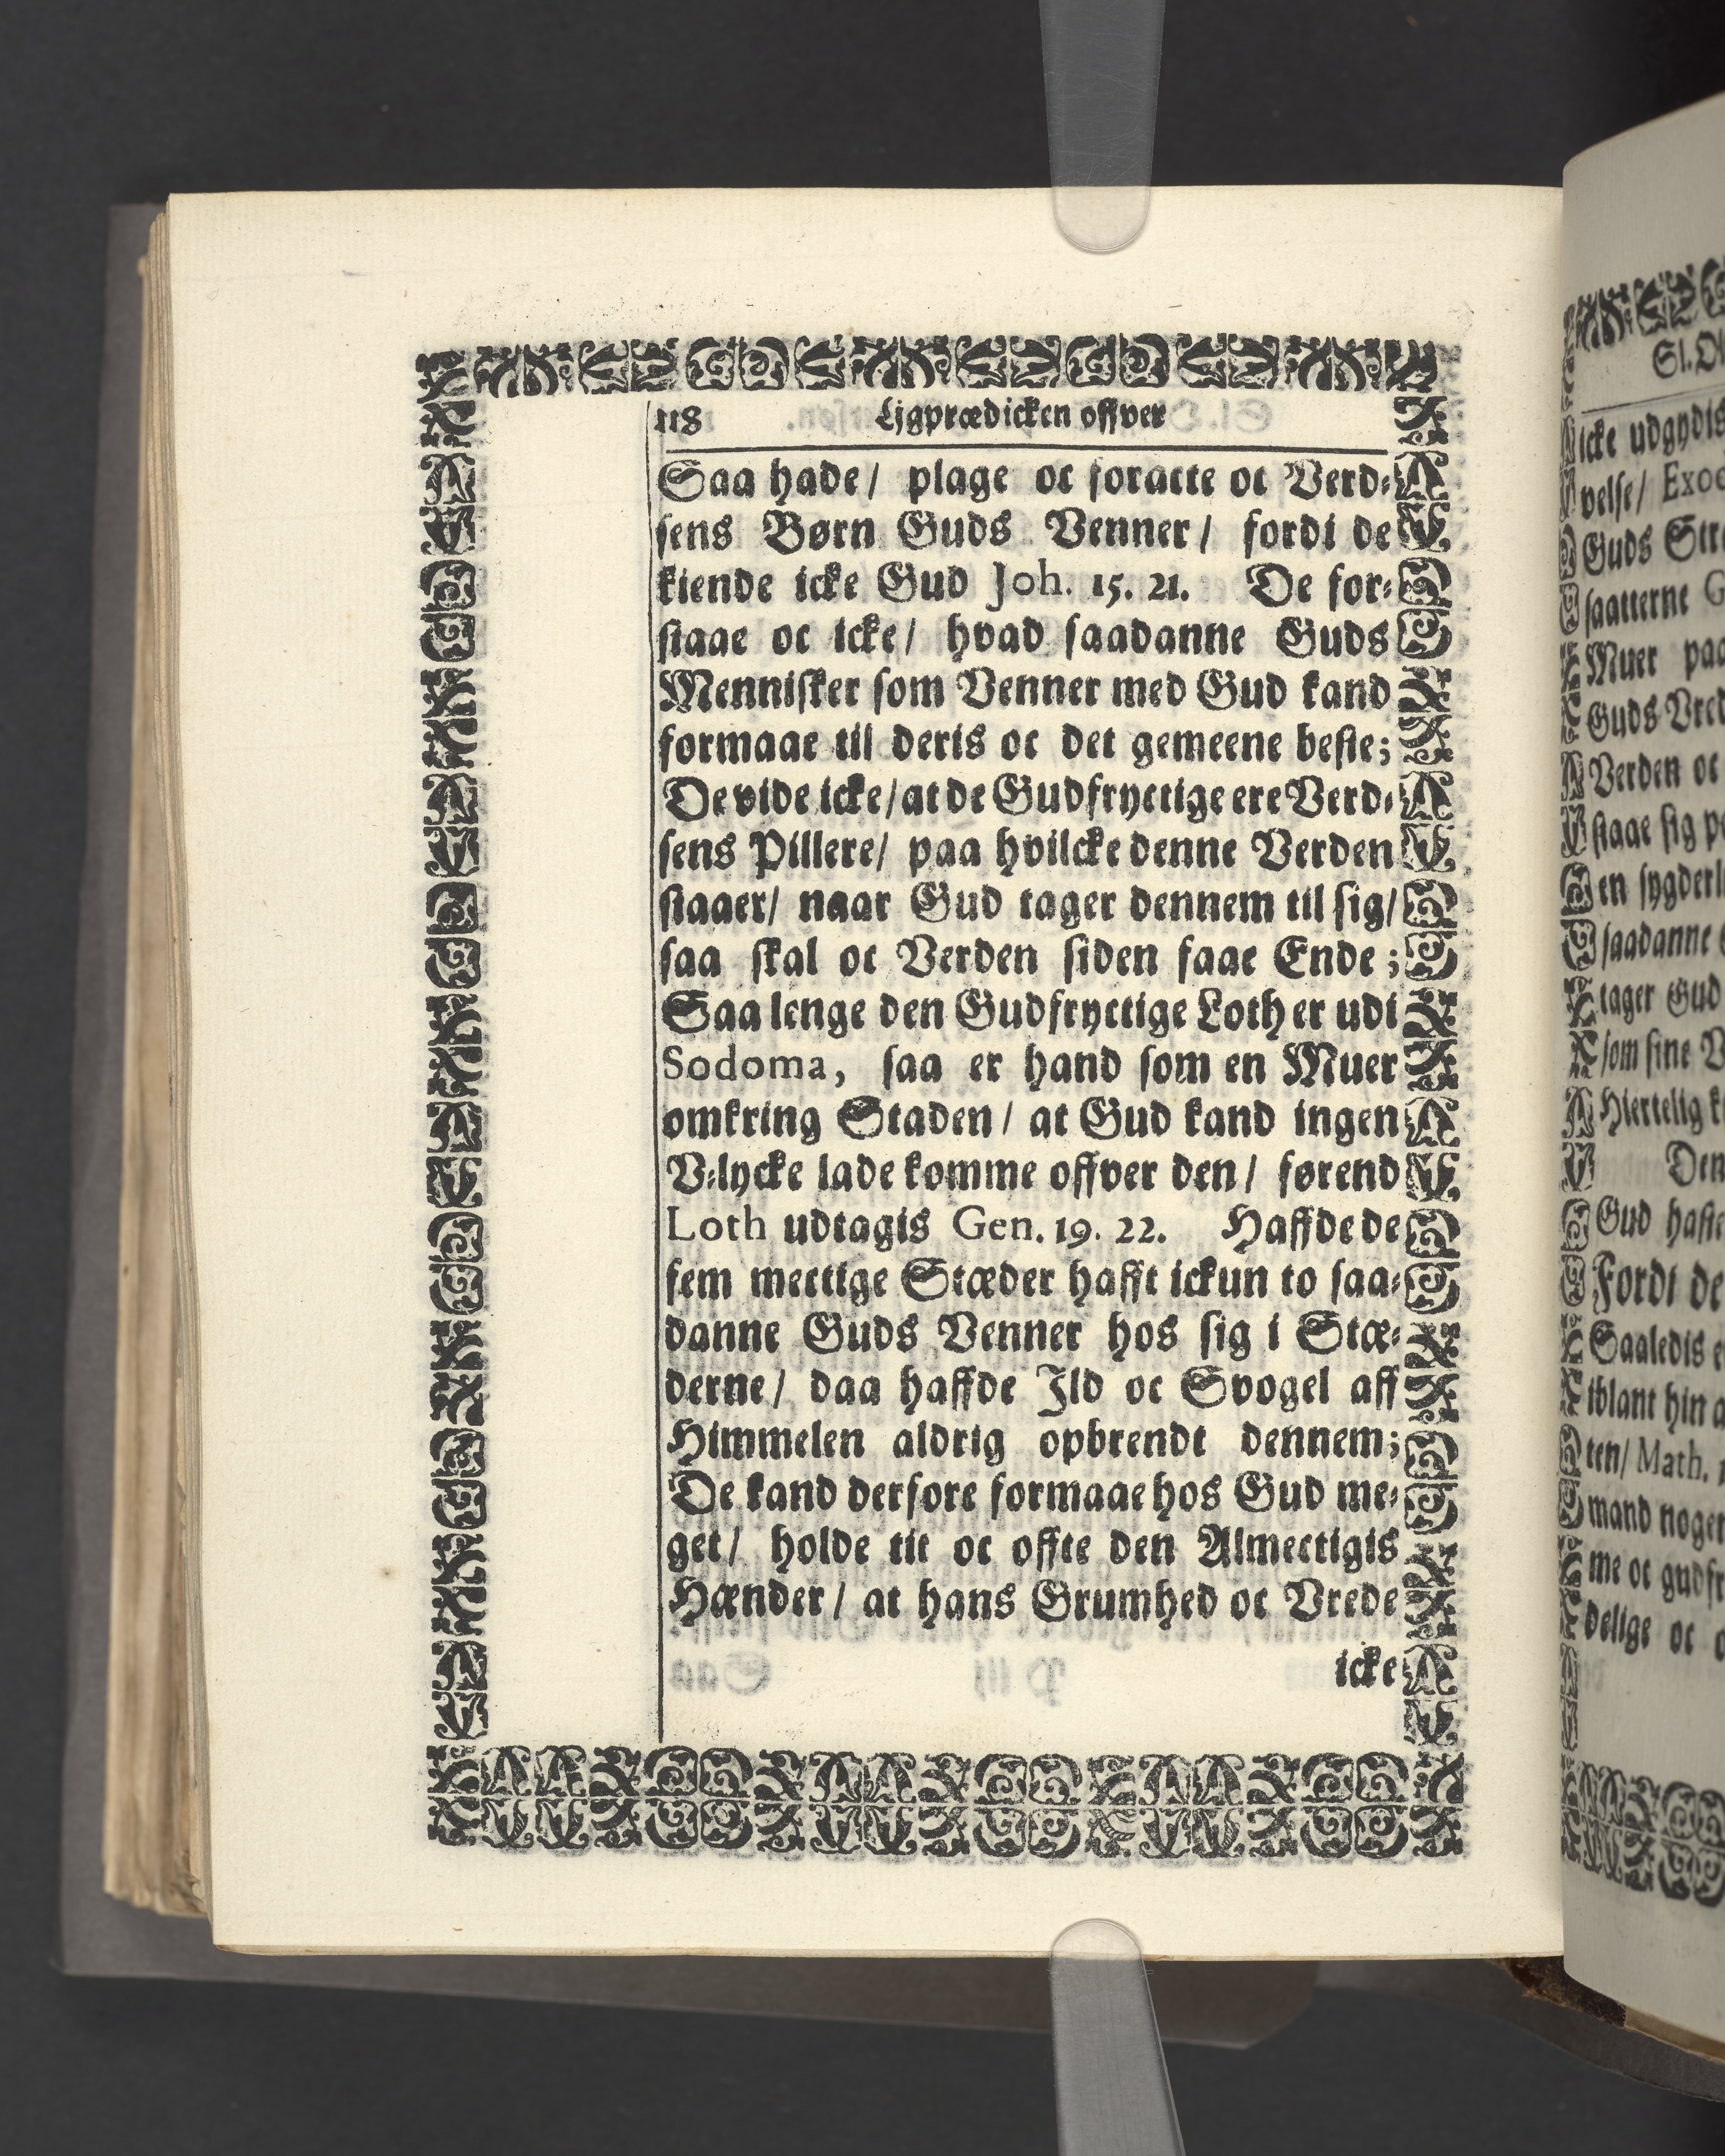 118 Ligprædicken offver
Saa hade/ plage oc foracte oc Verd⸗
sens Børn Guds Venner/ fordi de
kiende icke Gud Joh. 15. 21. De for⸗
staae oc icke/ hvad saadanne Guds
Mennisker som Venner med Gud kand
formaae til deris oc det gemeene beste;
De vide icke/ at de Gudfryctige ere Verd⸗
sens Pillere/ paa hvilcke denne Verden
staaer/ naar Gud tager dennem til sig/
saa skal oc Verden siden faae Ende;
Saa lenge den Gudfryctige Loth er udi
Sodoma, saa er hand som en Muer
omkring Staden/ at Gud kand ingen
V⸗lycke lade komme offver den/ førend
Loth udtagis Gen. 19. 22. Haffde de
fem mectige Stæder hafft ickun to saa⸗
danne Guds Venner hos sig i Stæ⸗
derne/ daa haffde Ild oc Svogel aff
Himmelen aldrig opbrendt dennem;
De kand derfore formaae hos Gud me⸗
get/ holde tit oc offte den Almectigis
Hænder/ at hans Grumhed oc Vrede
icke
icke udgydis
velse/
Guds
saatterne
Muer
Guds
Verden oc
staae sig
en
saadanne
tager Gud
som sine
Hiertelig
Den
Gud
Fordi de
Saaledis
iblant hin
ten/ Math.
mand
me oc
delige oc